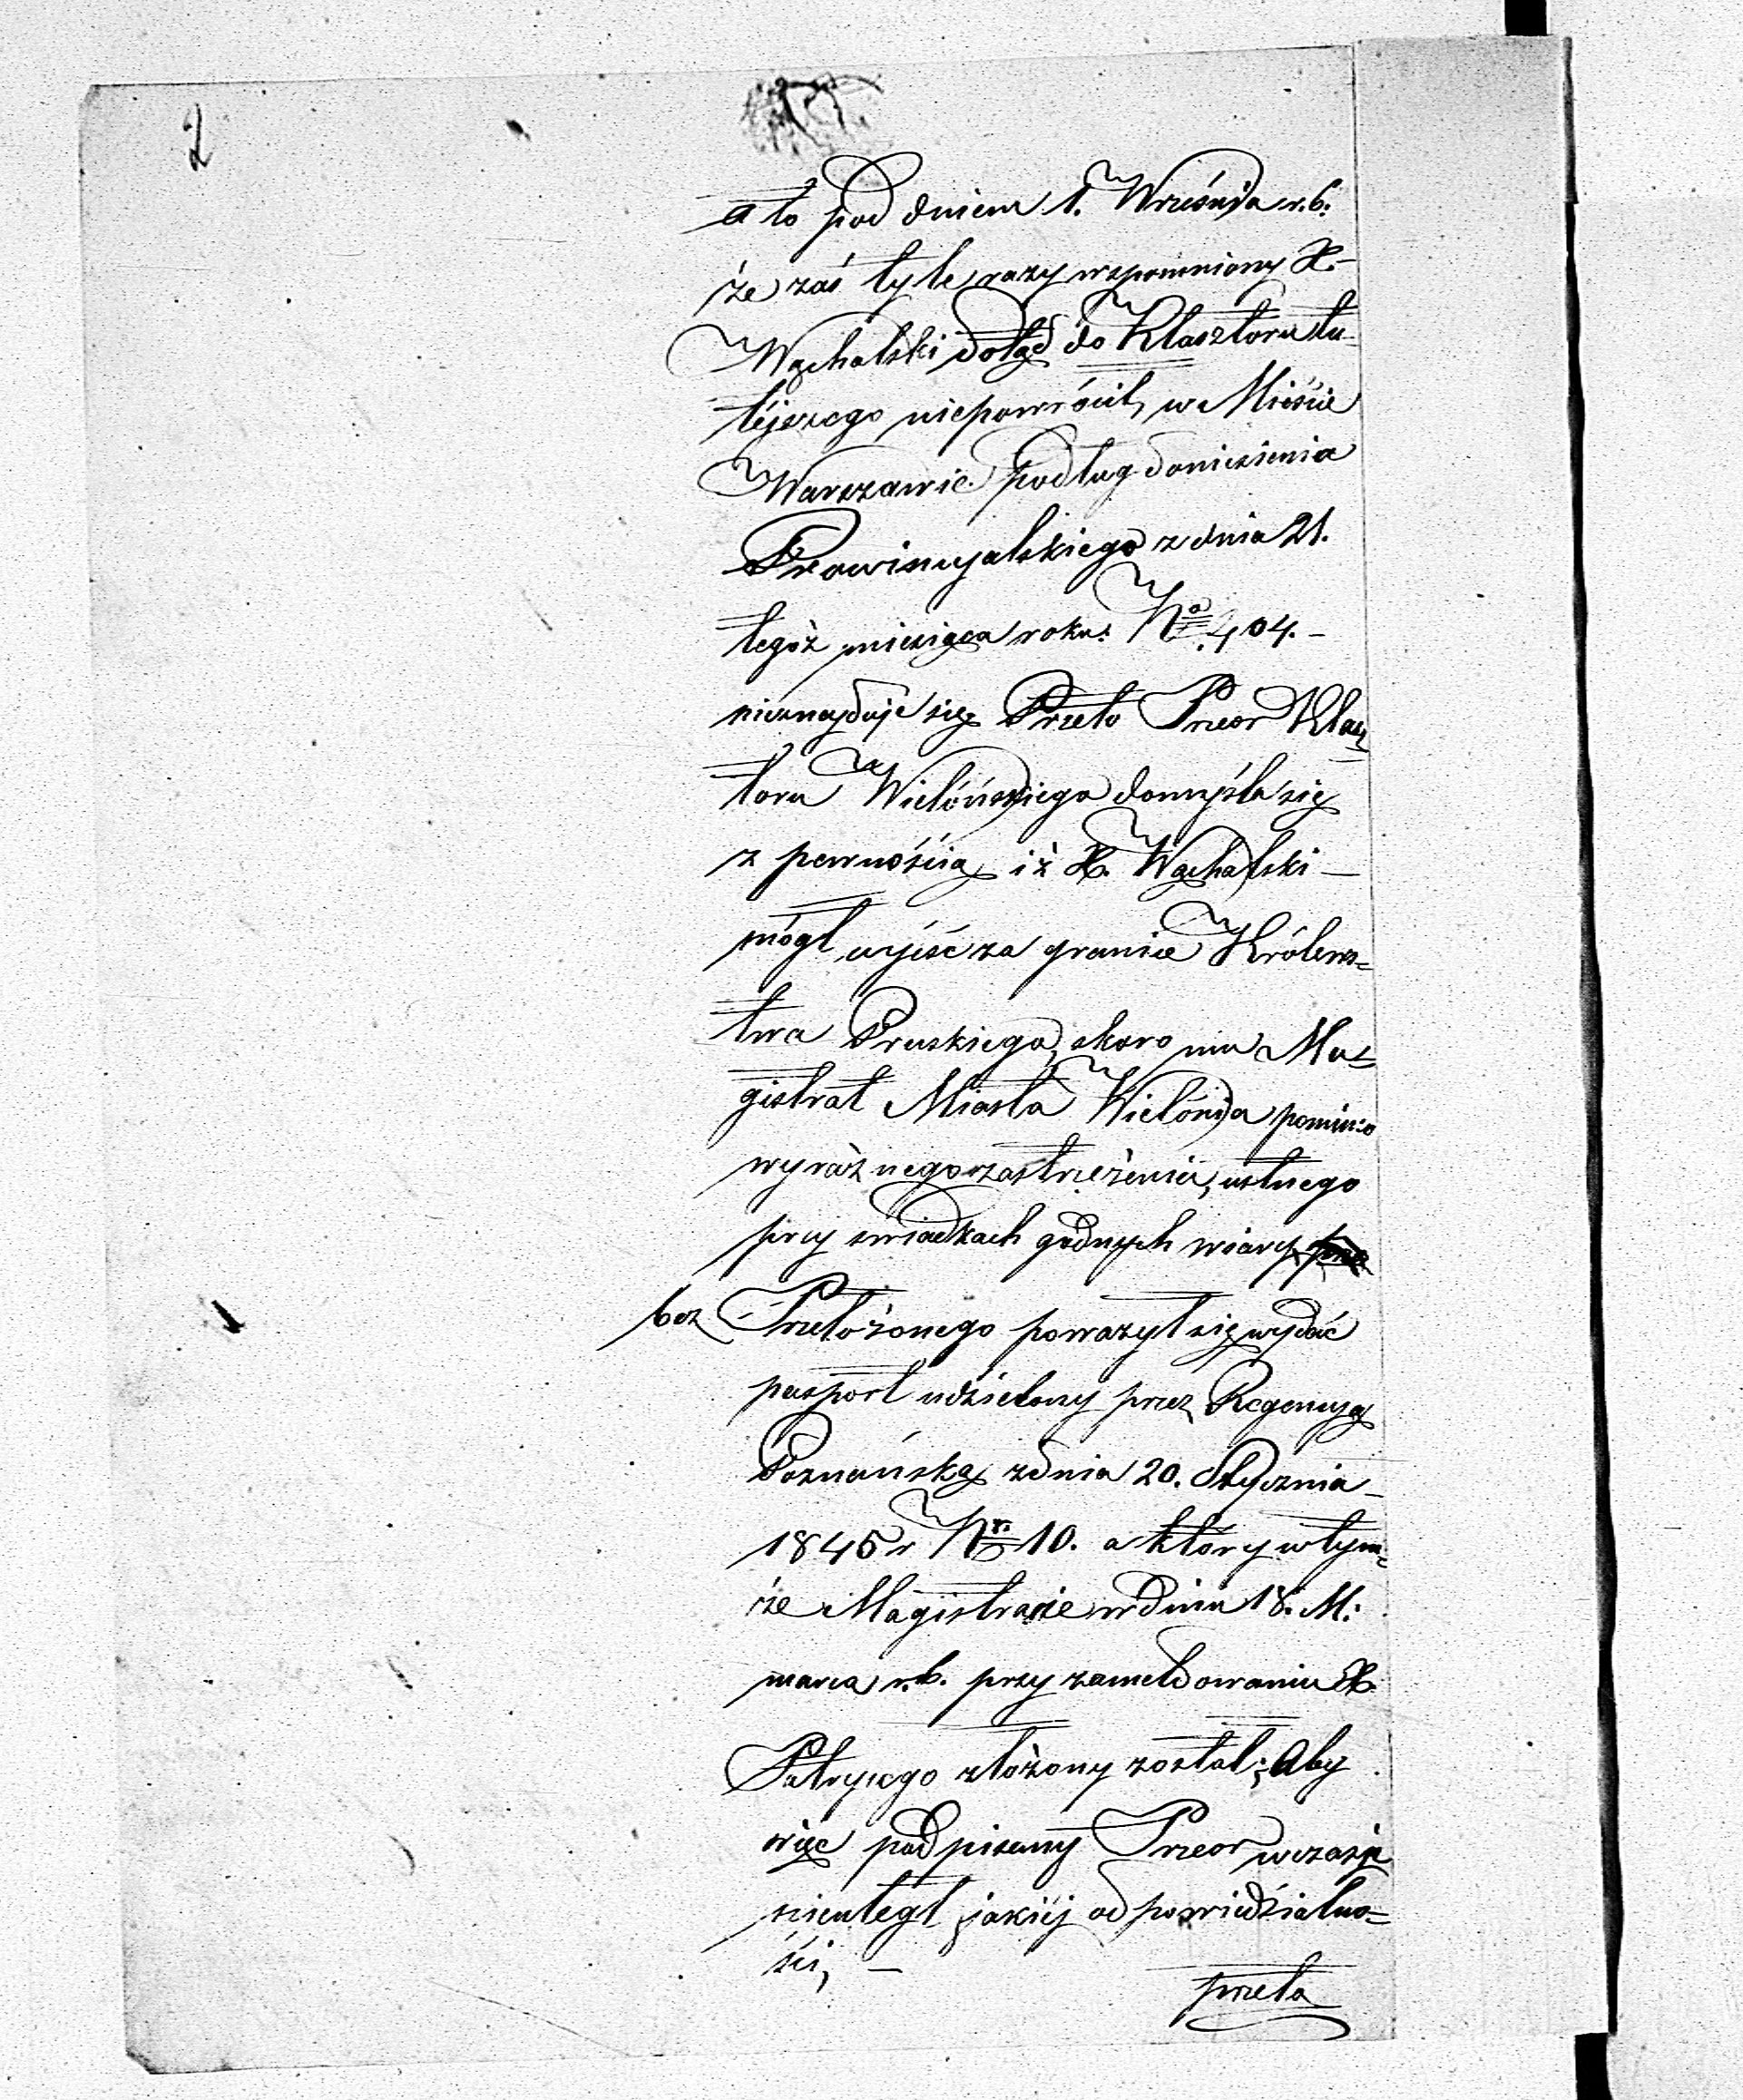 2
a to pod dniem 1. Września r. b.
że zaś tyle razy wspomniony X. –
Wąchalski dotąd do Klasztoru tu-
tejszego niepowrócił, w Mieście
Warszawie podług doniesienia
Prowincyalskiego z dnia 21.
tegoż miesiąca roku: No 404. –
nieznajduje się Przeto Przeor Klasz
toru Wielóńskiego domyśla się
z pewnością iż X. Wąchalski –
mógł ujść za granice Królews=
twa Pruskiego, skoro mu Ma=
gistrat Miasta Wielónia pomimo
wyraźnego zastrzeżenia, ustnego
przy świadkach godnych wiary
bez Przełożonego poważył się wydać
pasport udzielony przez Regencyą
Poznańską z dnia 20. Stycznia –
1845 r Nr. 10. a który w tym=
że Magistracie w dniu 18. M:
marca r. b. przy zameldowaniu X.
Patrycego złożony został; Aby
więc podpisany Przeor w czasie
nieuległ jakiéj odpowiedzialno=
ści, –
przeto